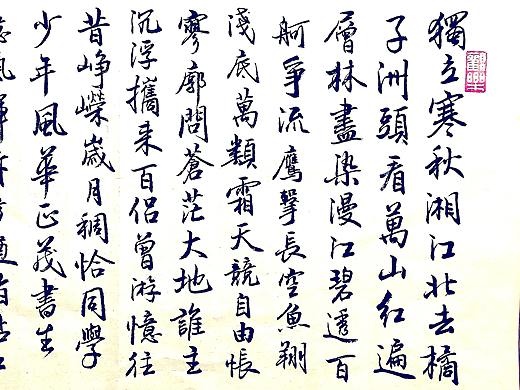 獨立寒秋湘江北去橘
子洲頭看萬山紅遍
層林盡染漫江碧透百
舸爭流鷹擊長空魚翔
淺底萬類霜天競自由悵
寥廓問蒼茫大地誰主
沉浮攜来百侶曾游憶往
昔崢嶸歲月稠恰同學
少年風華正茂書生